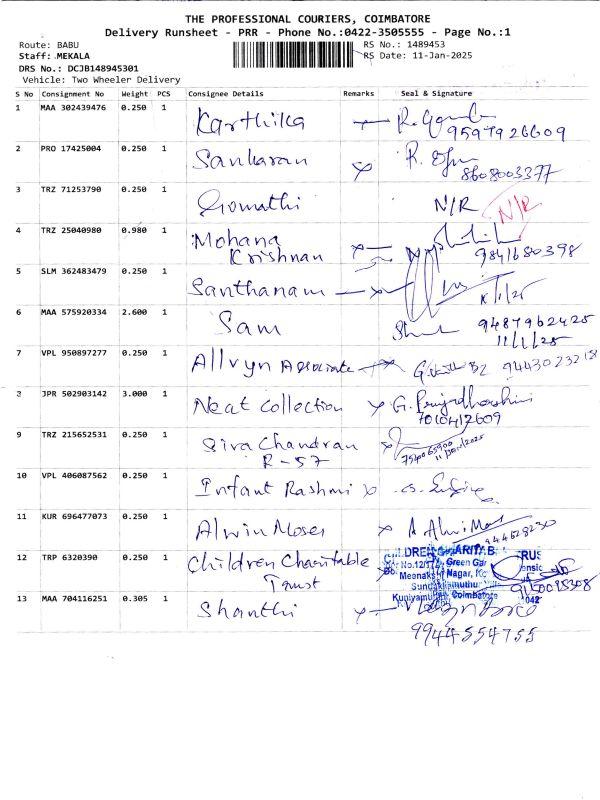 THE PROFESSIONAL COURIERS, COIMBATORE
Delivery Runsheet - PRR - Phone No.:0422-3505555 - Page No.:1
Route: BABU
RS No.: 1489453
Staff: MEKALA
RS Date: 11-Jan-2025
DRS No.: DCJB148945301
Vehicle: Two Wheeler Delivery
S No Consignment No Weight PCS Consignee Details Remarks Seal & Signature
1 MAA 302439476 0.250 1 Karthika
9597926609
2 PRO 17425004 0.250 1 Sankaran R.
8608003377
3 TRZ 71253790 0.250 1 Gomathi N/R N/R
4 TRZ 25040980 0.980 1 Mohana
Krishnan 9841680398
5 SLM 362483479 0.250 1 Santhanam
6 MAA 575920334 2.600 1 Sam 9487962425
11/1/25
7 VPL 950897277 0.250 1 Allvyn Associate
8 JPR 502903142 3.000 1 Neat Collection G.
7010412609
9 TRZ 215652531 0.250 1 Siva Chandran
R-57 11/Jan/2025
10 VPL 406087562 0.250 1 Infant Rashmi
11 KUR 696477073 0.250 1 Alwin Moses A.
12 TRP 6320390 0.250 1 Children Charitable
Trust
Green
Meenakshi Nagar,
Coimbatore
13 MAA 704116251 0.305 1 Shanthi
9944554755